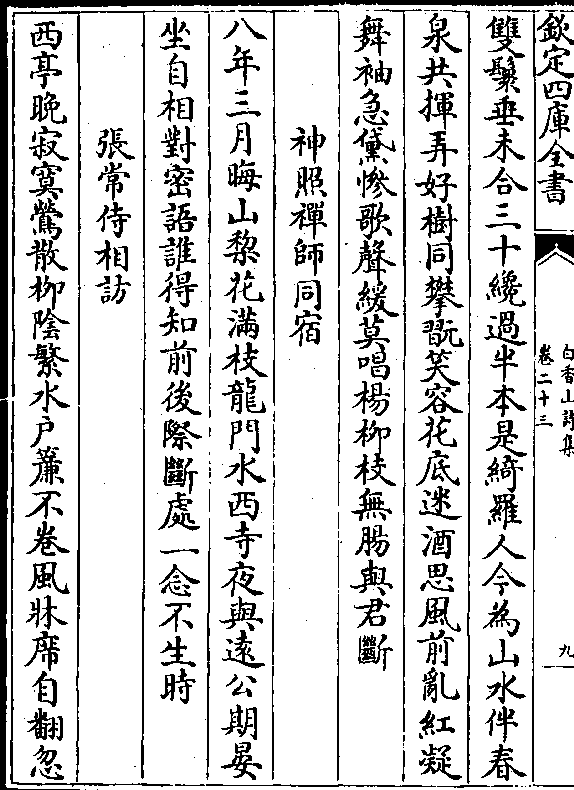 欽定四庫全書
白香山詩集
卷二十三
九
雙鬟垂未合三十纔過半本是綺羅人今為山水伴春
泉共揮弄好樹同攀翫笑容花底迷酒思風前亂紅凝
舞袖急黛慘歌聲緩莫唱楊柳枝無腸與君斷
神照禪師同宿
八年三月晦山梨花滿枝龍門水西寺夜與遠公期晏
坐自相對密語誰得知前後際斷處一念不生時
張常侍相訪
西亭晚寂寞鶯散柳陰繁水戶簾不卷風牀席自翻忽